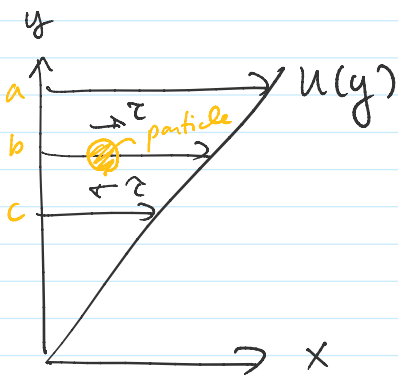 y
a
τ
u(y)
particle
b
τ
c
x